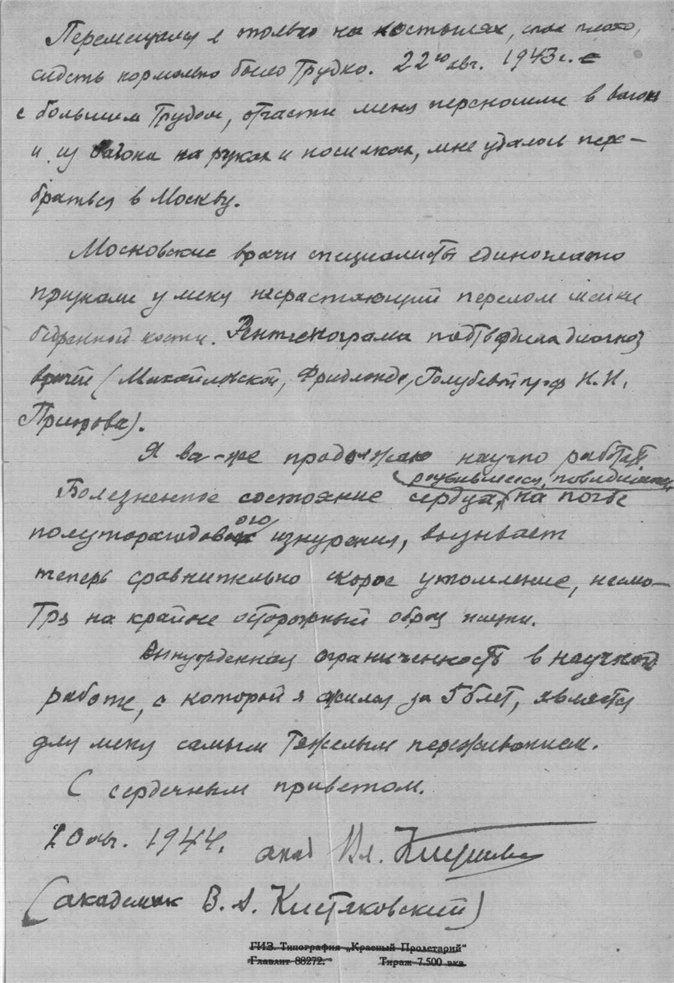 Перемещался я только на костылях, спал плохо,
сидеть нормально было трудно. 22го авг. 1943 г. с
с большим трудом, отчасти меня переносили в вагон
и из вагона на руках и носилках, мне удалось пере-
браться в Москву.
Московские врачи специалисты единогласно
признали у меня несрастающий перелом шейки
бедренной кости. Рентгенограма подтвердила диагноз
врачей (Михайловской, Фридланда, Голубевой проф Н.И.
Приорова).
Я все-же продолжаю научно работать.
Болезненное состояние сердца, развившееся, повидимому,
на почве
полуторагодового изнурения, вызывает
теперь сравнительно скорое утомление, несмо-
тря на крайне осторожный образ жизни.
Вынужденная ограниченность в научной
работе, с которой я сжился за 55 лет, является
для меня самым тяжелым переживанием.
С сердечным приветом.
20 авг. 1944. акад Вл.
(академик В. А. Кистяковский)
ГИЗ. Типография „Красный Пролетарий"
Главлит 88272. Тираж 7.500 экз.